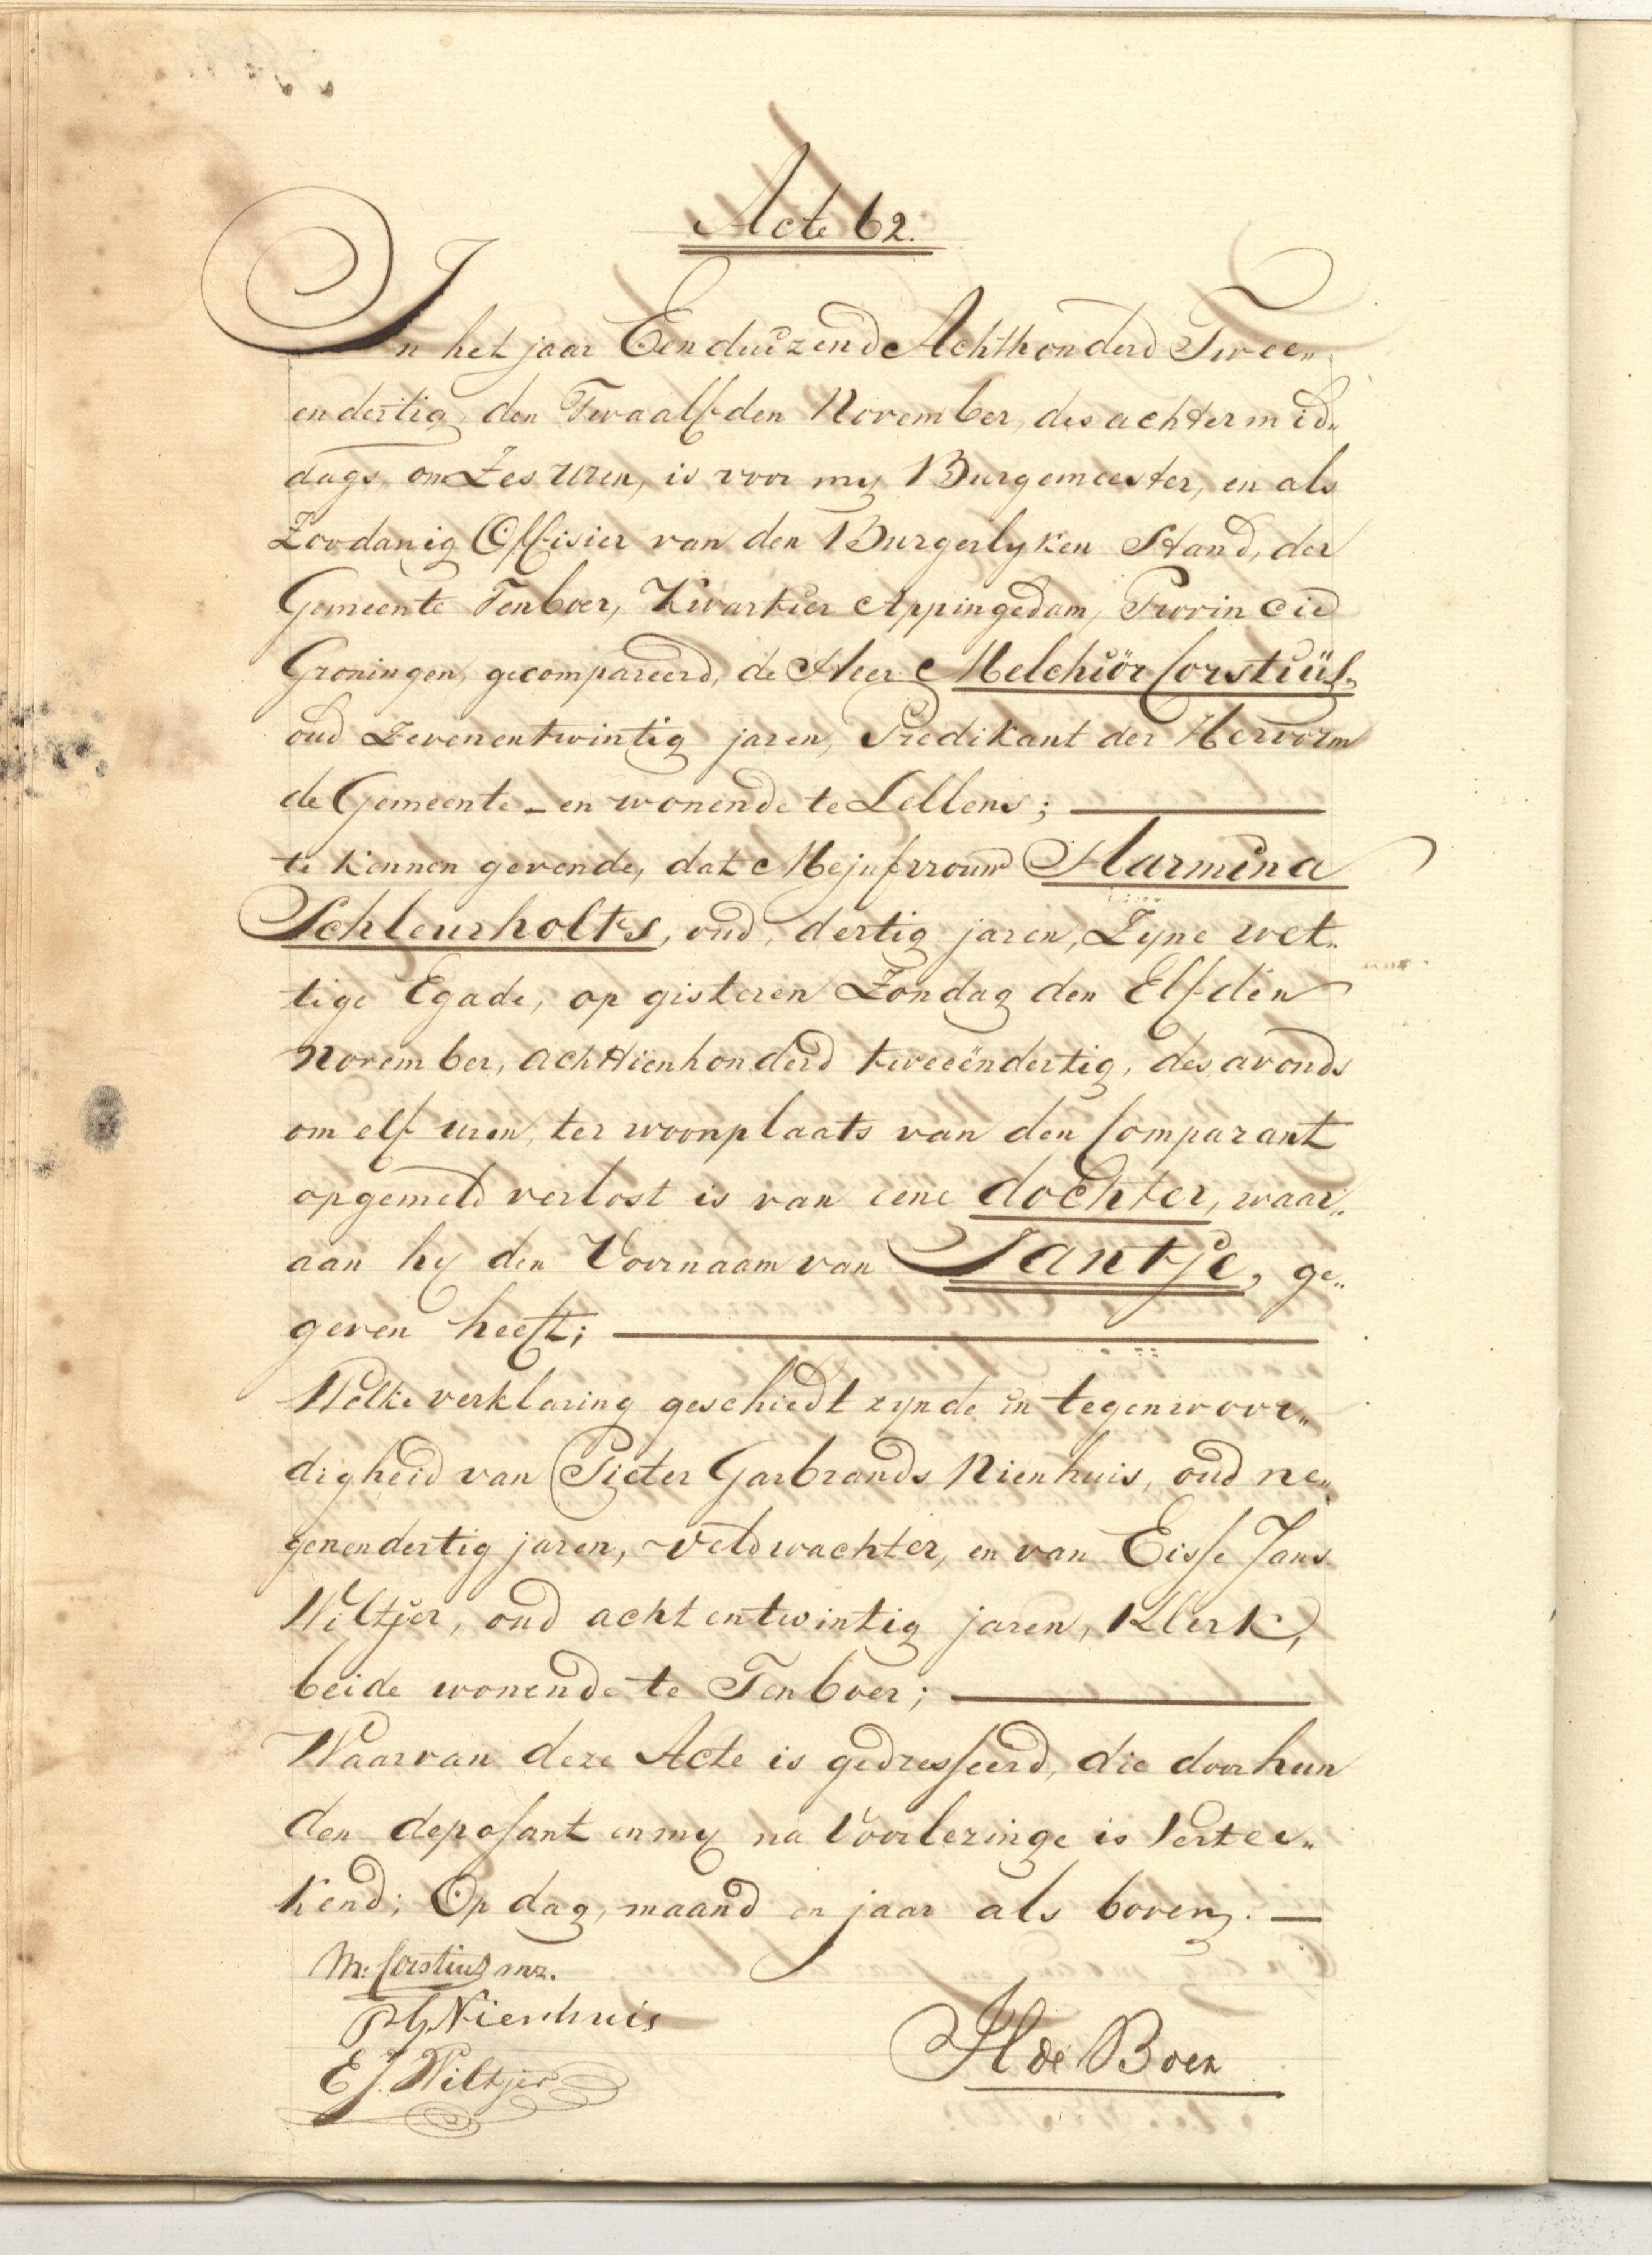 Acte 62.
In het jaar Eenduizend Achthonderd Twee„
endertig, den Twaalfden November, des achtermid„
dags, om Zes uren, is voor my Burgemeester, en als
Zoodanig Offisier van den Burgerlyken Stand, der
Gemeente Tenboer, Kwartier Appingedam, Provincie
Groningen, gecompareerd, de Heer Melchiör Corstiüs,
oud Zevenentwintig jaren, Predikant der Hervorm
de Gemeente - en wonende te Lellens;
te kennen gevende, dat Mejufvrouw Harmina
Schleurholts, oud, dertig jaren, Zyne wet„
tige Egade, op gisteren Zondag den Elfden
November, achttienhonderd tweeëndertig, des avonds
om elf uren, ter woonplaats van den Comparant
opgemeld verlost is van eene dochter, waar„
aan hy den Voornaam van Jantje, ge„
geven heeft;
Welke verklaring geschiedt zynde in tegenwoor„
digheid van Pieter Garbrands Nienhuis, oud ne„
genendertig jaren, veldwachter, en van Eisse Jans
Wiltjer, oud achtentwintig jaren, Klerk,
beide wonende te Tenboer;
Waarvan deze Acte is gedresseerd, die door hun
den deposant en my na Voorlezinge is Vertee„
kend; Op dag, maand en jaar als boven. —
M: Corstius mz.
PG Nienhuis
EJ. Wiltjer
H de Boer